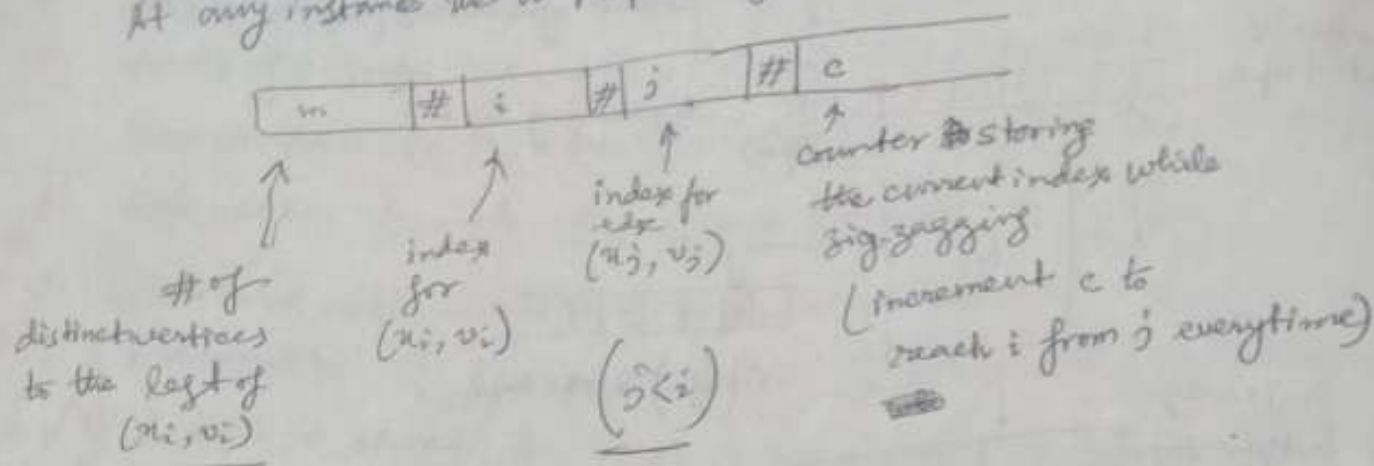 At any instance we
m # i # j # c
# of
distinct vertices
to the left of
(ui, vi)
index
for
(ui, vi)
index for
edge
(uj, vj)
(j<i)
counter storing
the current index while
zig-zagging
(increment c to
reach i from j everytime)